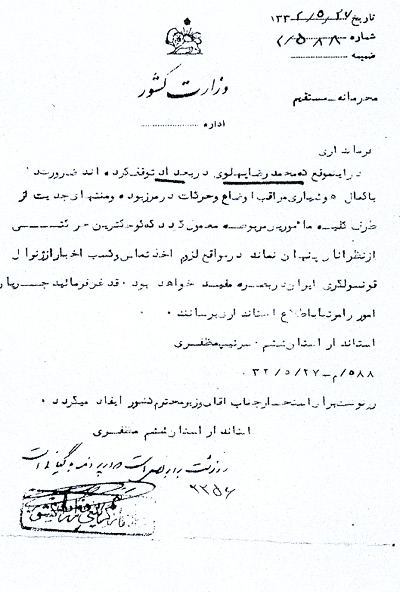 تاریخ ۱۳۳۲/۵/۲۷
شماره ۵۸۸/م
ضمیمه
وزارت کشور
محرمانه - مستقیم
اداره
فرمانداری
در اینموقع که محمد رضا پهلوی در بغداد توقف کرده اند ضرورت
باکمال هوشیاری مراقب اوضاع و حرکات در مرز بوده ومنتهای جدیت از
طرف کلیه مامورین مربوطه معمول گردد که کوچکترین حرکتــی
از نظر آنان پنهان نماند در مواقع لزوم اخذ تماس وکسب اخبار از ژنرال
قونسولگری ایران در بصره مفید خواهد بود ۰ قدغن فرمائید جریان
امور را مرتبا باطلاع استانداری برسانند ۰
استاندار استان ششم ۰ سرتیپ مظفری
۵۸۸/م-۳۲/۵/۲۷
رونوشت برای استحضار جناب آقای وزیر محترم کشور ایفاد میگردد ۰
استاندار استان ششم مظفری
رونوشت برابر اصل است
۲۳۵۶